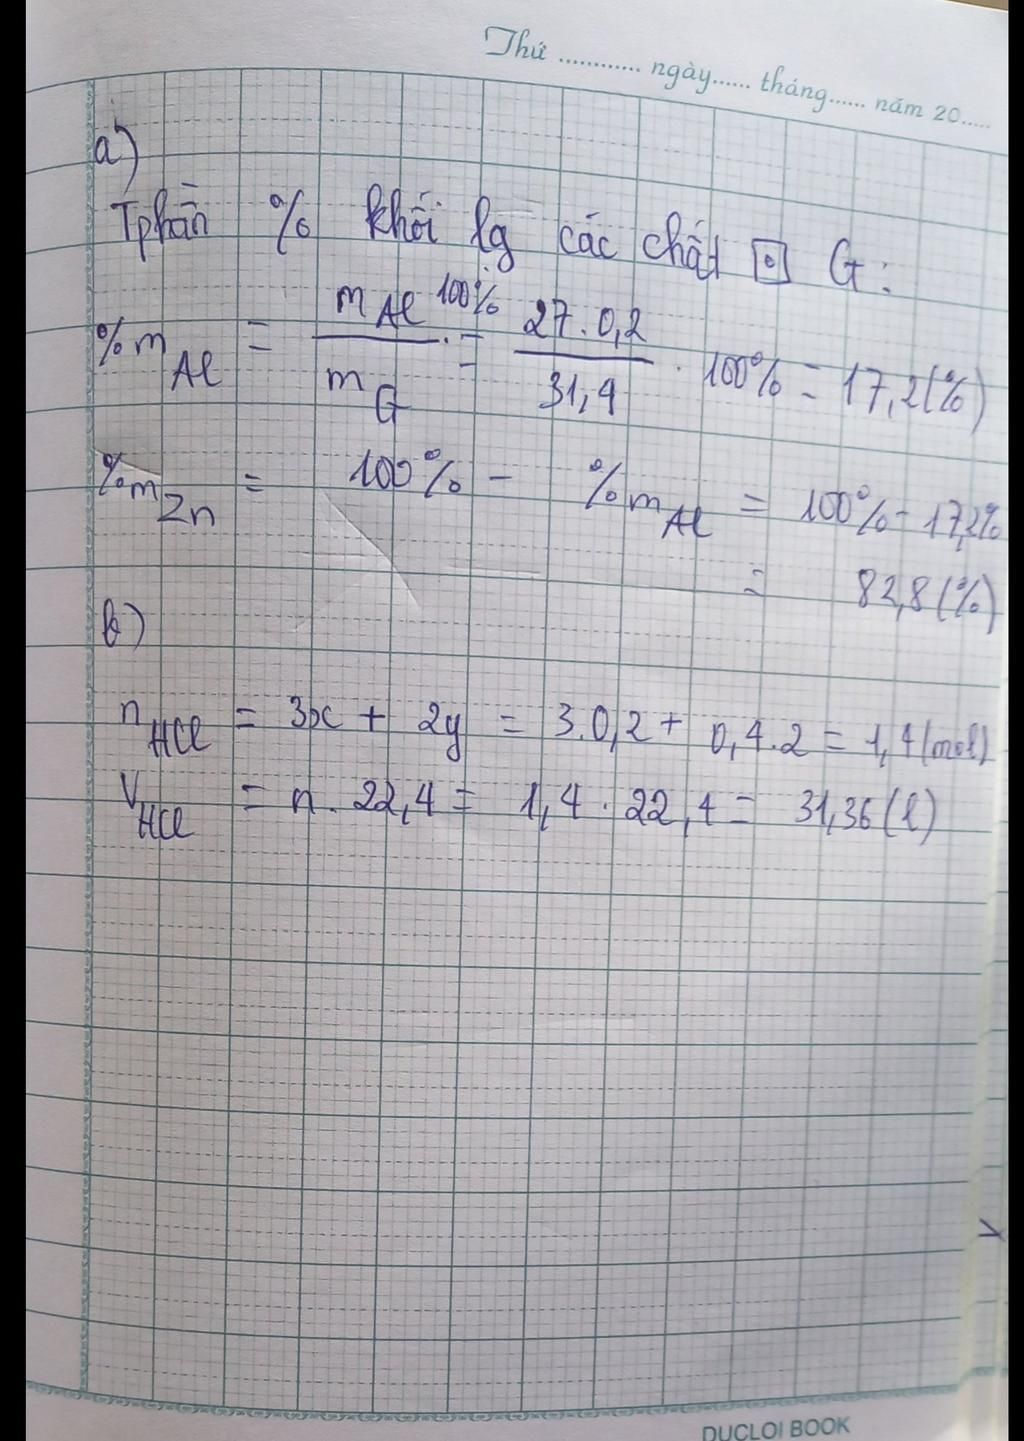 Thứ ............ ngày...... tháng...... năm 20.....
a)
Tphần % khối lg các chất ⊡ G:
%m Al = m Al / m G . 100% = 27.0,2 / 31,4 . 100% = 17,2(%)
%m Zn = 100% - %m Al = 100% - 17,2%
= 82,8(%)
b)
n HCl = 3x + 2y = 3.0,2 + 0,4.2 = 1,4(mol)
V HCl = n. 22,4 = 1,4 . 22,4 = 31,36(l)
DUCLOI BOOK